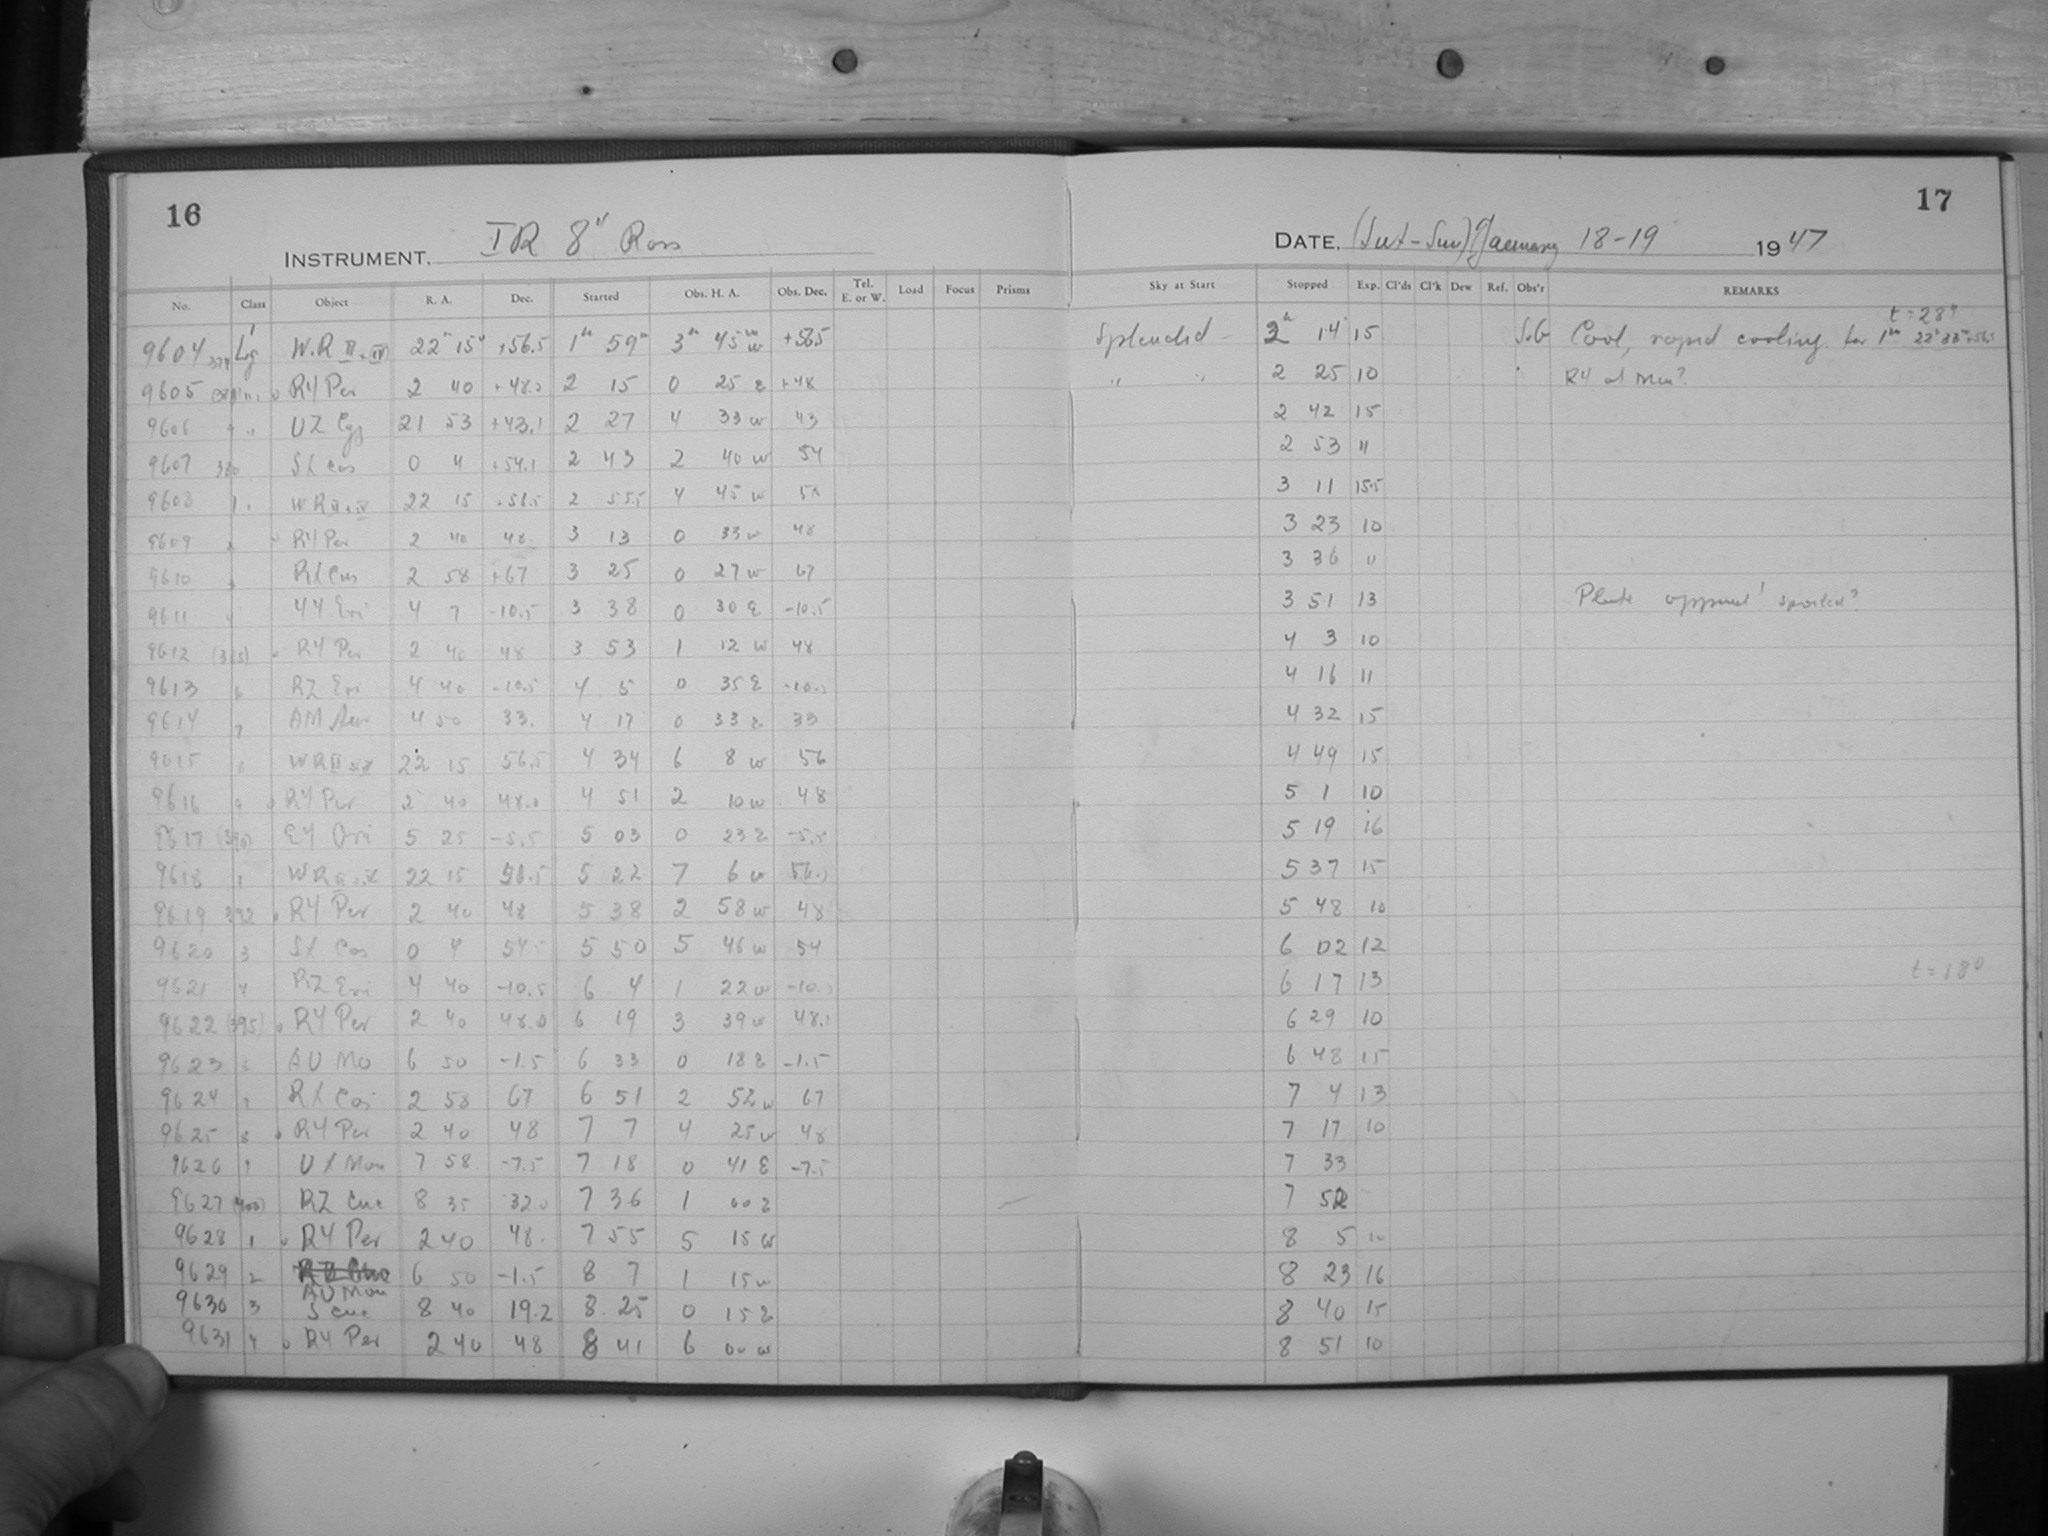 16
INSTRUMENT. IR 8" Ross
No. Class Object R. A. Dec. Started Obs. H. A. Obs. Dec. Tel. E. or W. Load Focus Prisms
9604 W.R 22h 15 +56.5 1h 59m 3h 45m w +56.5
9605 RY Per 2 40 +48.0 2 15 0 25 E +48
9606 " UZ Cyg 21 53 +43.1 2 27 4 33 w 43
9607 380 SX Cas 0 4 +54.1 2 43 2 40 w 54
9608 1 WR 22 15 +56.5 2 55.5 4 45 w
9609 RY Per 2 40 48. 3 13 0 33 w 48
9610 RX Cas 2 58 +67 3 25 0 27 w 67
9611 YY Eri 4 7 -10.5 3 38 0 30 E -10.5
9612 (385) RY Per 2 40 48 3 53 1 12 w 48
9613 6 RZ Eri 4 40 -10.5 4 5 0 35 E -10.5
9614 7 AM Aur 4 50 33. 4 17 0 33 E 33
9615 WR 22 15 56.5 4 34 6 8 w 56
9616 9 RY Per 2 40 48.0 4 51 2 10 w 48
9617 (390) EY Ori 5 25 -5.5 5 03 0 23 E -5.5
9618 1 WR 22 15 56.5 5 22 7 6 w 56.5
9619 392 RY Per 2 40 48 5 38 2 58 w 48
9620 3 SX Cas 0 4 54 5 50 5 46 w 54
9621 4 RZ Eri 4 40 -10.5 6 4 1 22 w -10.5
9622 (395) RY Per 2 40 48.0 6 19 3 39 w 48.
9623 6 AU Mo 6 50 -1.5 6 33 0 18 E -1.5
9624 7 RX Cas 2 58 67 6 51 2 52 w 67
9625 8 RY Per 2 40 48 7 7 4 25 w 48
9626 9 UX Mon 7 58 -7.5 7 18 0 41 E -7.5
9627 (400) RZ Cnc 8 35 32.0 7 36 1 00 E
9628 1 RY Per 2 40 48. 7 55 5 15 w
9629 2 AU Mon 6 50 -1.5 8 7 1 15 w
9630 3 S Cnc 8 40 19.2 8 25 0 15 E
9631 4 RY Per 2 40 48 8 41 6 00 w
17
DATE, (Sat-Sun) January 18-19 1947
Sky at Start Stopped Exp. Cl'ds Cl'k Dew Ref. Obs'r REMARKS
t = 28°
Splendid 2h 14 15 S.G Cool, rapid cooling for 1h
" " 2 25 10 RY at Min?
2 42 15
2 53 "
3 11 15.5
3 23 10
3 36 11
3 51 13 Plate spoiled?
4 3 10
4 16 11
4 32 15
4 49 15
5 1 10
5 19 16
5 37 15
5 48 10
6 02 12
t = 18°
6 17 13
6 29 10
6 48 15
7 4 13
7 17 10
7 33
7 52
8 5 10
8 23 16
8 40 15
8 51 10